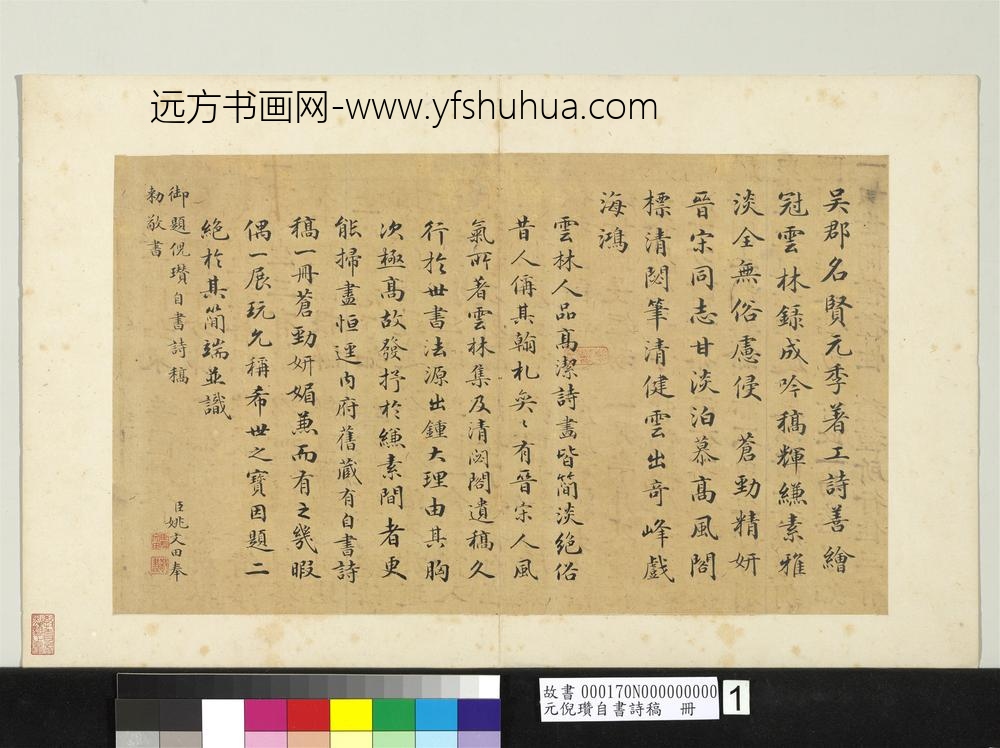 远方书画网-www.yfshuhua.com
吴郡名賢元季著工詩善繪
冠雲林録成吟稿輝縑素雅
淡全無俗慮侵 蒼勁精妍
晉宋同志甘淡泊慕高風閤
標清閟筆清健雲出奇峰戲
海鴻
雲林人品高潔詩畫皆簡淡絶俗
昔人偁其翰札奕〻有晉宋人風
氣所著雲林集及清閟閣遺稿久
行於世書法源出鍾大理由其胸
次極高故發抒於縑素間者更
能掃盡恒逕内府舊藏有自書詩
稿一冊蒼勁妍媚兼而有之幾暇
偶一展玩允稱希世之寶因題二
絶於其簡端並識
御題倪瓚自書詩稿
臣姚文田奉
勅敬書
故書 000170N000000000
元倪瓚自書詩稿 冊
1